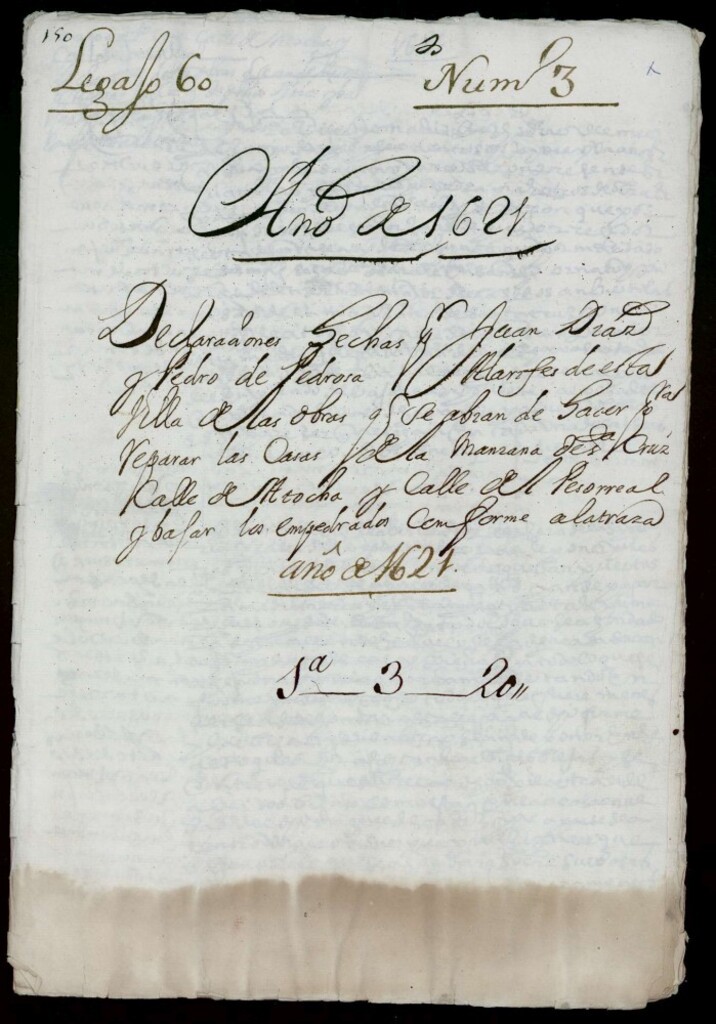 150
Legajo 60
Numº 3
Año de 1621
Declaraçiones hechas pr Juan Diaz
y Pedro de Pedrosa Alarifes de esta
Villa de las obras q se abran de hacer pra
reparar las Casas de la Manzana de Sta Cruz
Calle de Atocha y Calle del Pesorreal
y bajar los empedrados conforme a la traza
año de 1621.
1ª 3 20